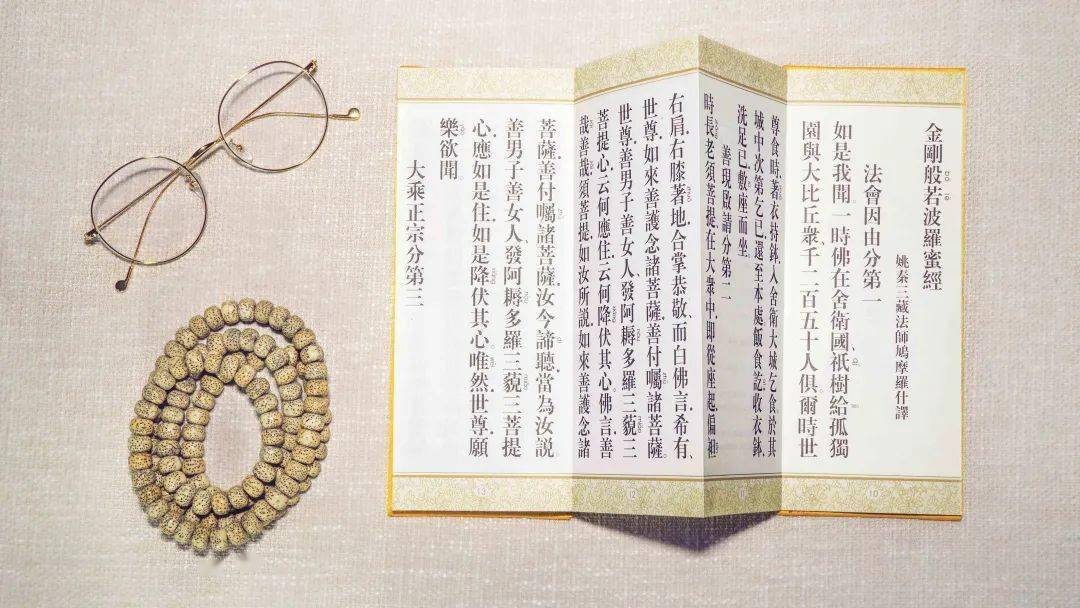 金剛般若波羅蜜經
姚秦三藏法師鳩摩羅什譯
法會因由分第一
如是我聞。一時佛在舍衛國、祇樹給孤獨
園與大比丘衆、千二百五十人俱。爾時世
10
尊食時、著衣持鉢、入舍衛大城乞食於其
城中次第乞已、還至本處、飯食訖、收衣鉢、
洗足已、敷座而坐。
善現啟請分第二
時長老須菩提、在大衆中、即從座起、偏袒
11
右肩、右膝著地、合掌恭敬、而白佛言、希有、
世尊、如來善護念諸菩薩、善付囑諸菩薩。
世尊、善男子善女人、發阿耨多羅三藐三
菩提心、云何應住、云何降伏其心。佛言善
哉善哉、須菩提、如汝所說、如來善護念諸
12
菩薩、善付囑諸菩薩、汝今諦聽、當為汝說、
善男子善女人、發阿耨多羅三藐三菩提
心、應如是住、如是降伏其心。唯然世尊、願
樂欲聞
大乘正宗分第三
13